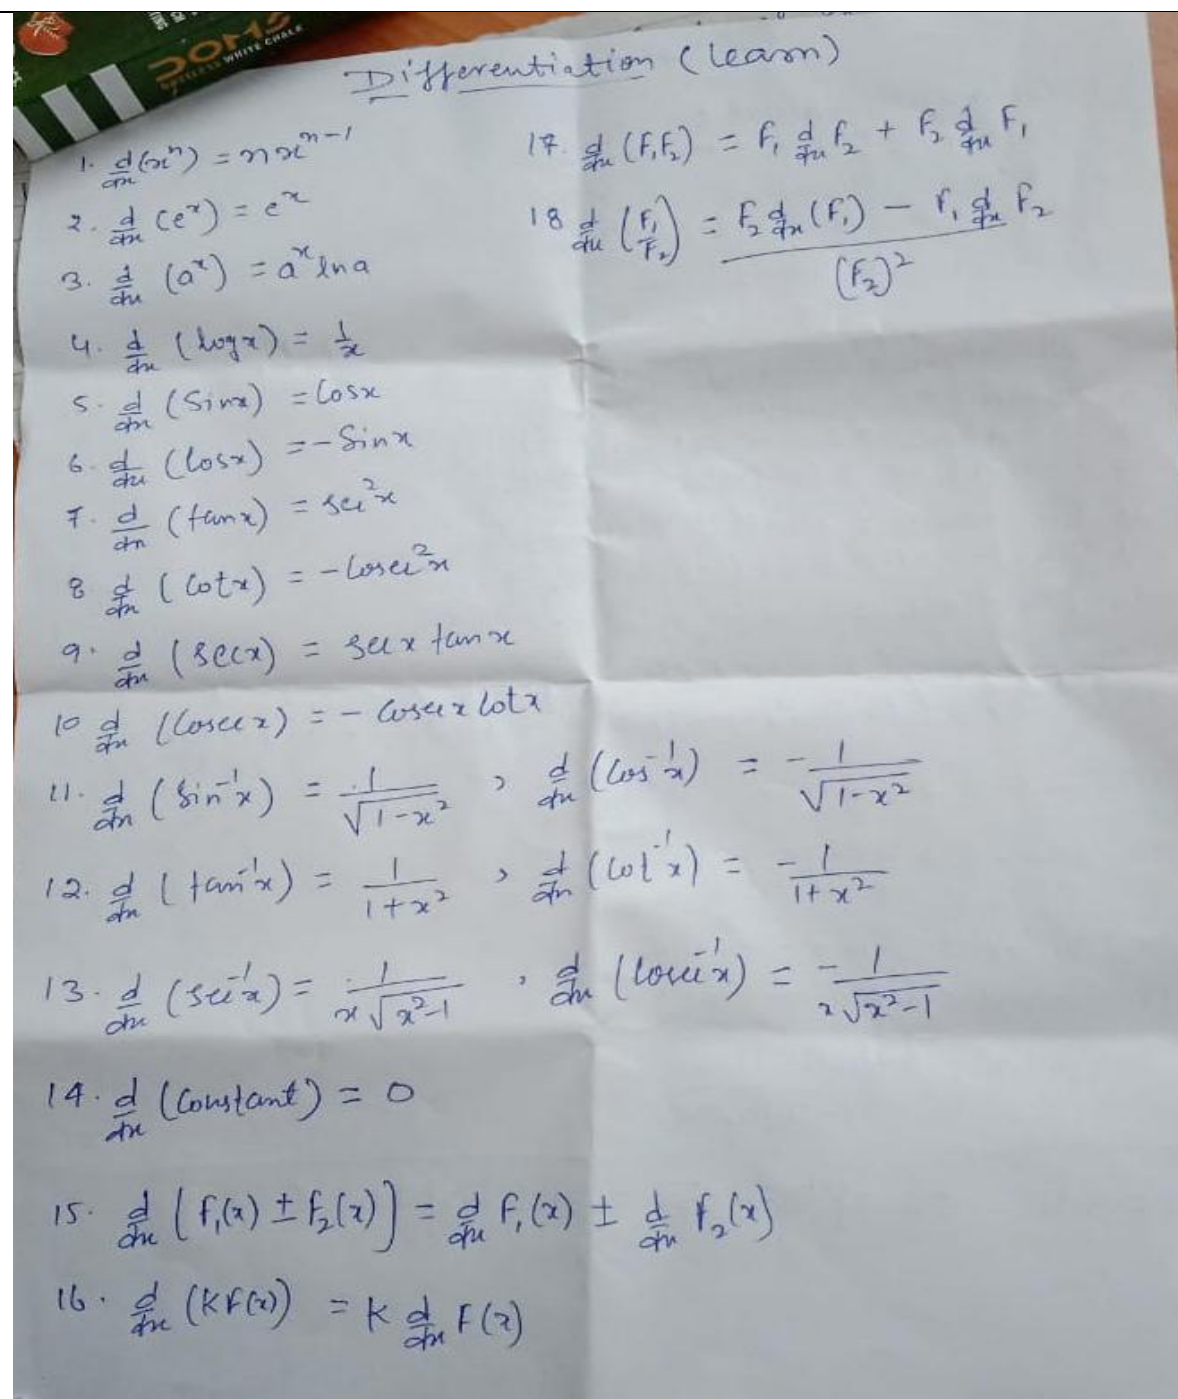 DOMS
DUSTLESS WHITE CHALK
Differentiation (Learn)
1. d/dx (xⁿ) = n xⁿ⁻¹
2. d/dx (eˣ) = eˣ
3. d/dx (aˣ) = aˣ ln a
4. d/dx (log x) = 1/x
5. d/dx (Sin x) = Cos x
6. d/dx (Cos x) = - Sin x
7. d/dx (tan x) = sec² x
8 d/dx (Cot x) = - Cosec² x
9. d/dx (sec x) = sec x tan x
10 d/dx (Cosec x) = - Cosec x Cot x
11. d/dx (Sin⁻¹ x) = 1/√(1-x²) , d/dx (Cos⁻¹ x) = -1/√(1-x²)
12. d/dx (tan⁻¹ x) = 1/(1+x²) , d/dx (Cot⁻¹ x) = -1/(1+x²)
13. d/dx (sec⁻¹ x) = 1/(x√(x²-1)) , d/dx (Cosec⁻¹ x) = -1/(x√(x²-1))
14. d/dx (Constant) = 0
15. d/dx [F₁(x) ± F₂(x)] = d/dx F₁(x) ± d/dx F₂(x)
16. d/dx (K F(x)) = K d/dx F(x)
17. d/dx (F₁F₂) = F₁ d/dx F₂ + F₂ d/dx F₁
18 d/dx (F₁/F₂) = (F₂ d/dx (F₁) - F₁ d/dx F₂)/(F₂)²